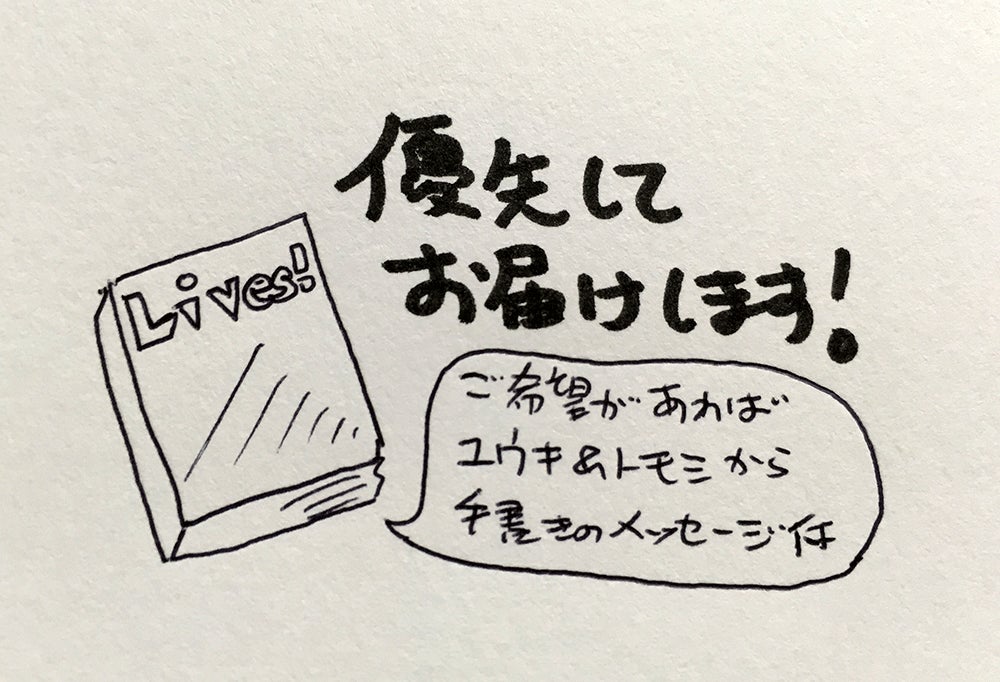 優先して
お届けします!
Lives!
ご希望があれば
ユウキ&トモミから
手書きのメッセージ付